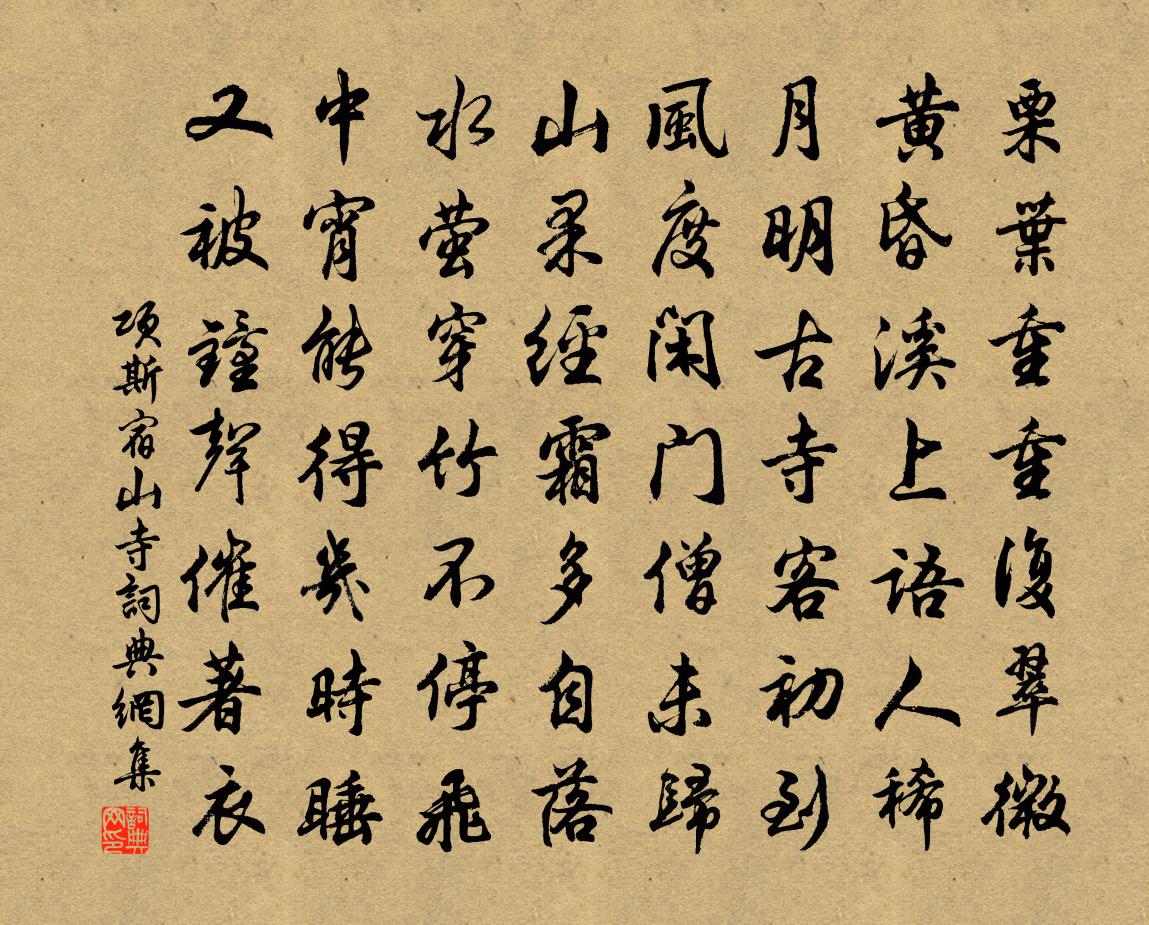 栗葉重重復翠微
黃昏溪上語人稀
月明古寺客初到
風度閑門僧未歸
山果經霜多自落
水螢穿竹不停飛
中宵能得幾時睡
又被鐘聲催著衣
項斯宿山寺詞典網集
詞典網印